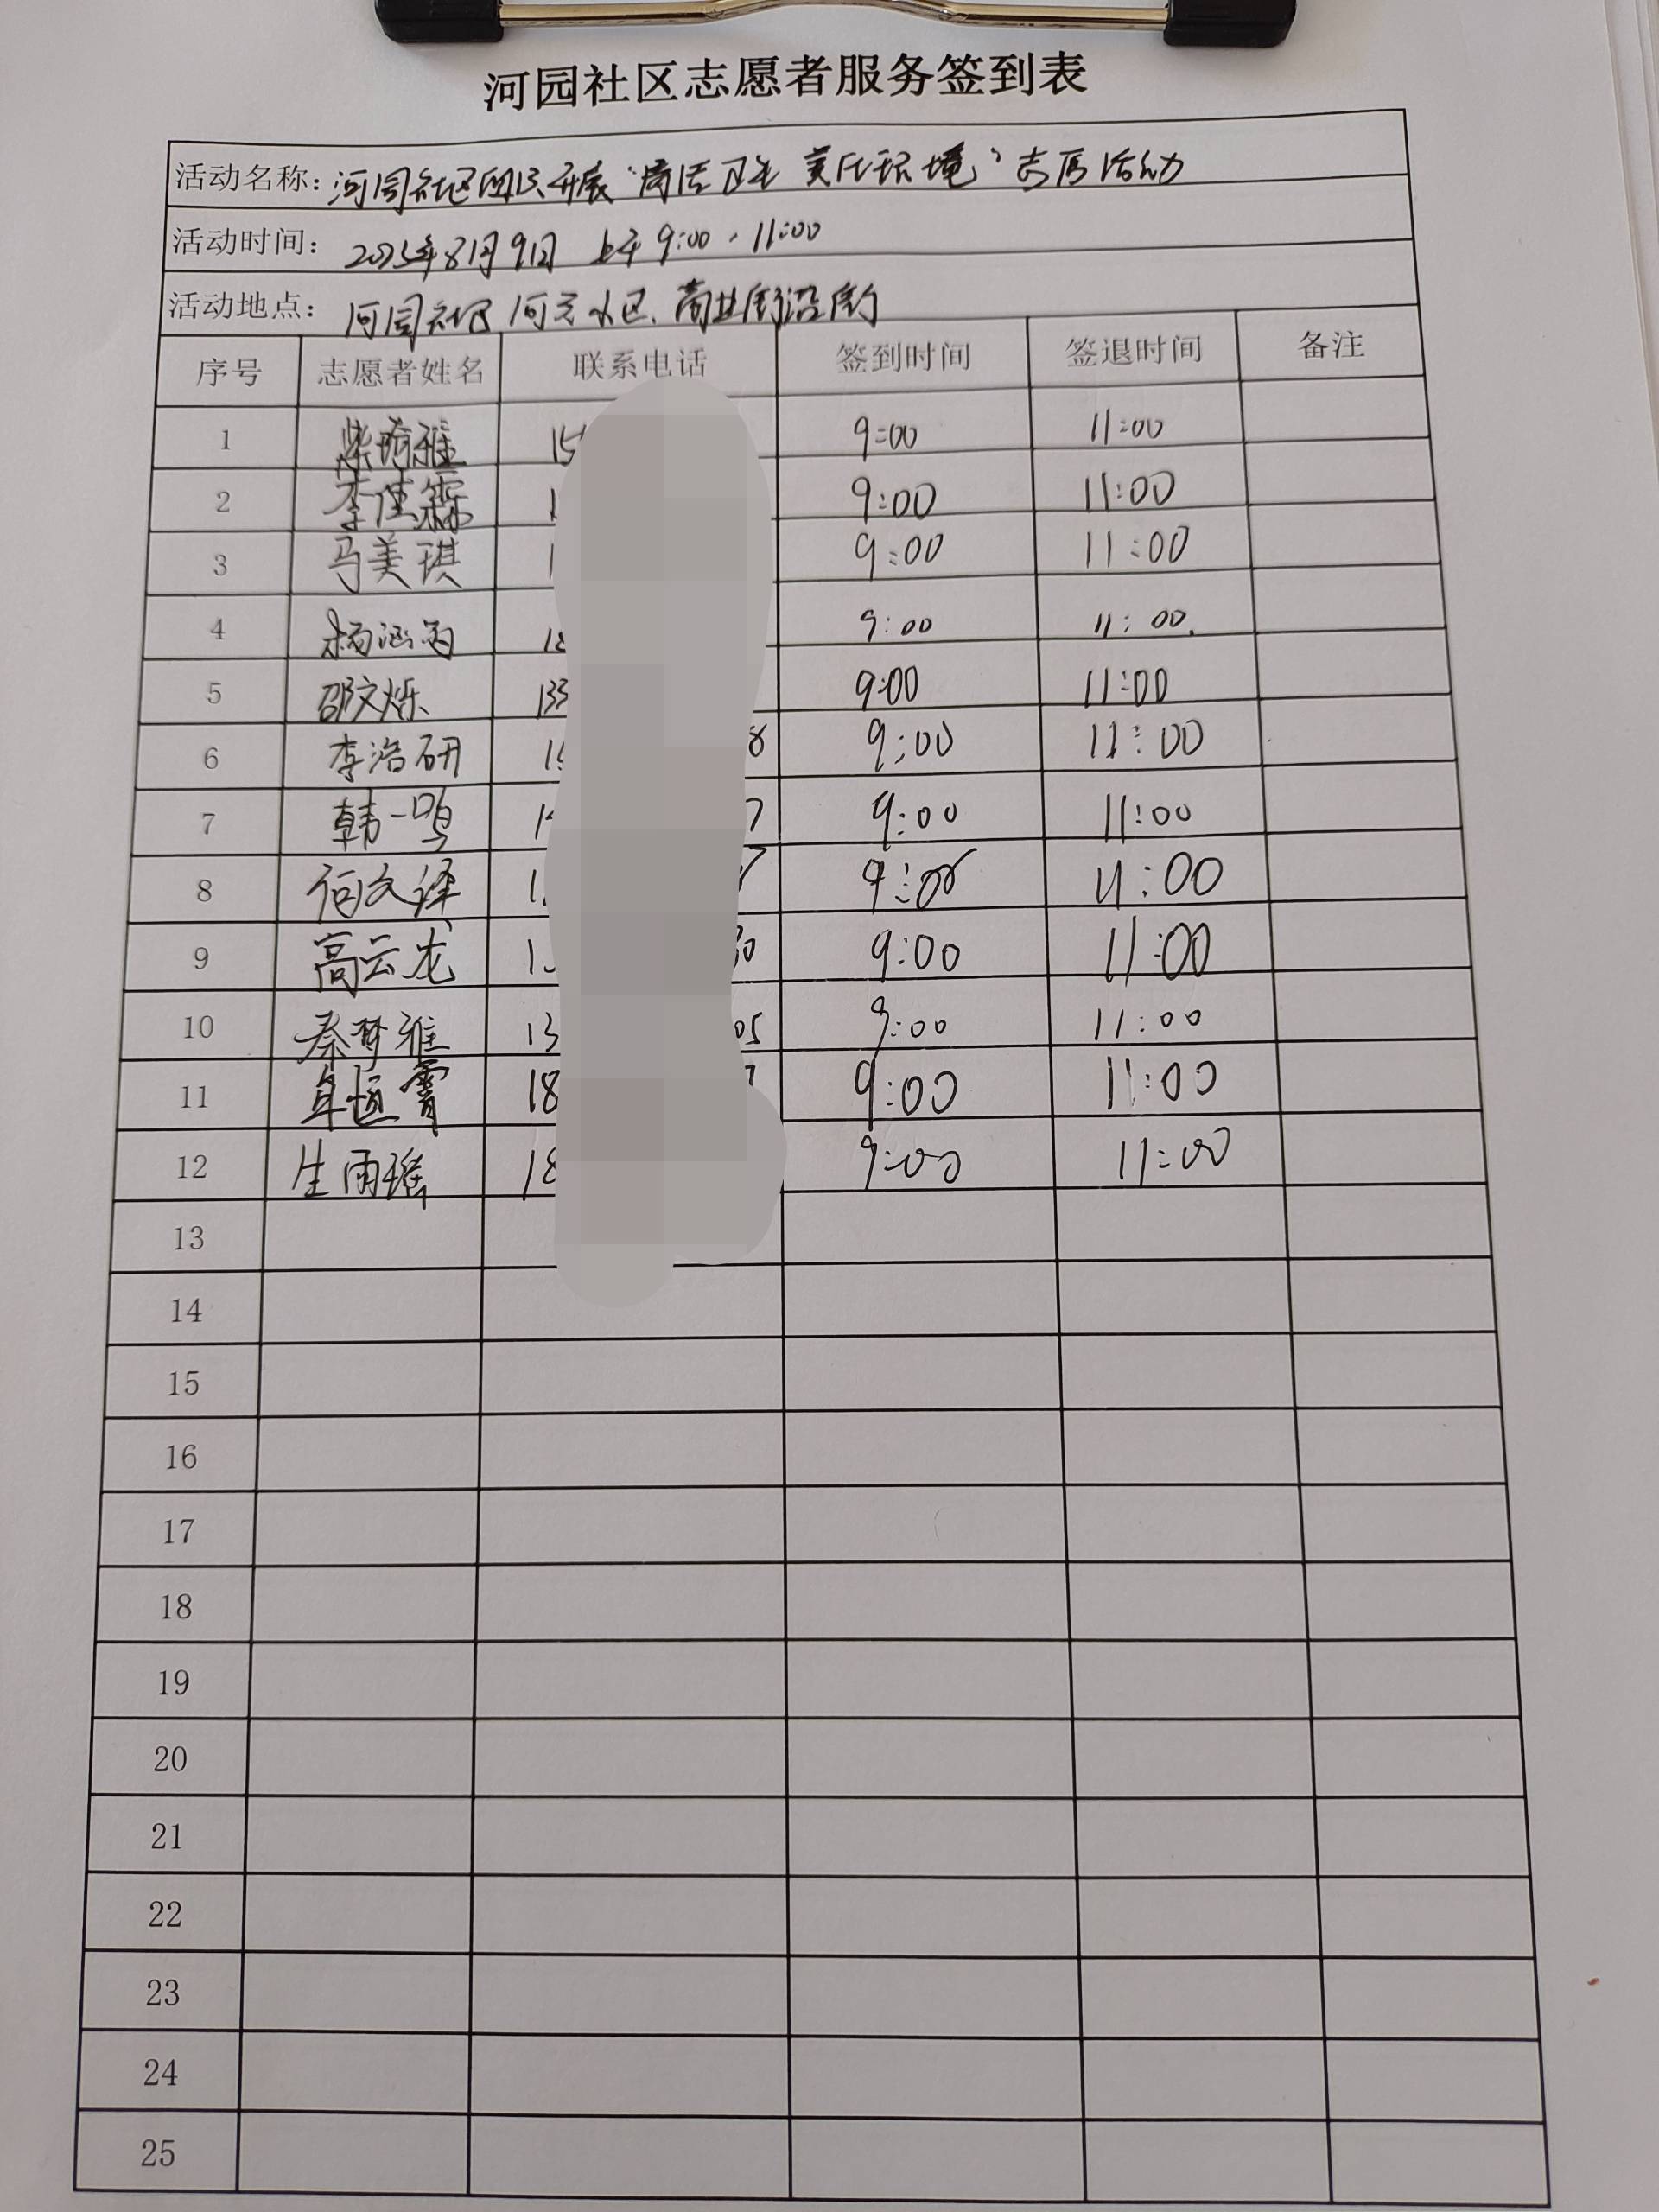 河园社区志愿者服务签到表
活动名称：河园社区组织开展“清洁卫生 美化环境”志愿活动
活动时间： 2025年8月9日 上午 9:00 - 11:00
活动地点： 河园社区 小区、商业街沿街
序号 志愿者姓名 联系电话 签到时间 签退时间 备注
1 柴雅 15 9:00 11:00
2 李佳霖 1 9:00 11:00
3 马美琪 1 9:00 11:00
4 杨涵 18 9:00 11:00
5 邵文烁 133 9:00 11:00
6 李浩研 15 8 9:00 11:00
7 韩一鸣 1 7 9:00 11:00
8 何文译 1 9:00 11:00
9 高云龙 1 30 9:00 11:00
10 秦梦雅 13 05 9:00 11:00
11 恒霄 18 7 9:00 11:00
12 生雨瑶 18 9:00 11:00
13
14
15
16
17
18
19
20
21
22
23
24
25